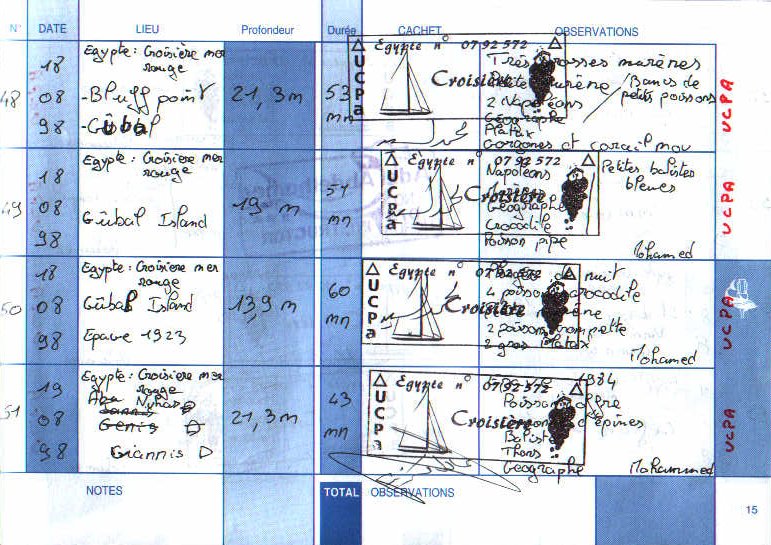 N° DATE LIEU Profondeur Durée CACHET OBSERVATIONS
48
18
08
98
Egypte: Croisière mer
rouge
- Bluff point
- Gûbal
21,3m
53
mn
Egypte n° 0792572
UCPa
Croisière
Très grosses murènes
Petite murène / Bancs de
petits poissons
2 Napoléons
Géographe
Platax
Gorgones et corail mou
UCPA
49
18
08
98
Egypte: Croisière mer
rouge
Gûbal Island
19 m
51
mn
Egypte n° 0792572
UCPa
Croisière
Napoléons
Petites balistes
bleues
Géographe
Crocodile
Poisson pipe
Mohamed
UCPA
50
18
08
98
Egypte: Croisière mer
rouge
Gûbal Island
Epave 1923
13,9m
60
mn
Egypte n° 0792572
UCPa
Croisière
de nuit
4 poissons crocodile
murène
2 poissons trompette
2 gros Platax
Mohamed
UCPA
51
19
08
98
Egypte: Croisière mer
rouge
Giannis D
21,3m
43
mn
Egypte n° 0792572
UCPa
Croisière
1984
Poisson coffre
d'épines
Baliste
Thons
Géographe
Mohammed
UCPA
NOTES TOTAL OBSERVATIONS
15